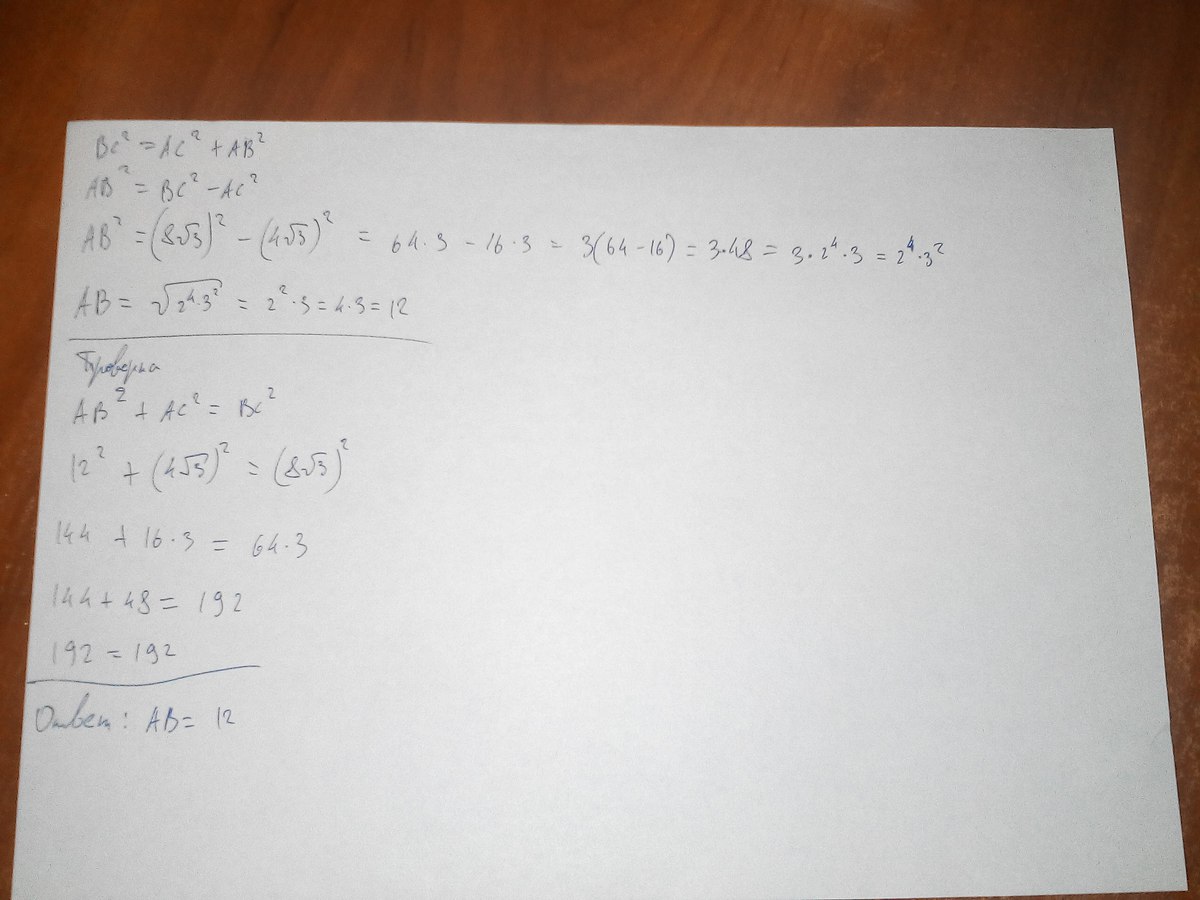 BC² = AC² + AB²
AB² = BC² - AC²
AB² = (8√3)² - (4√3)² = 64·3 - 16·3 = 3(64-16) = 3·48 = 3·2⁴·3 = 2⁴·3²
AB = √2⁴·3² = 2²·3 = 4·3 = 12
Проверка
AB² + AC² = BC²
12² + (4√3)² = (8√3)²
144 + 16·3 = 64·3
144 + 48 = 192
192 = 192
Ответ: AB = 12